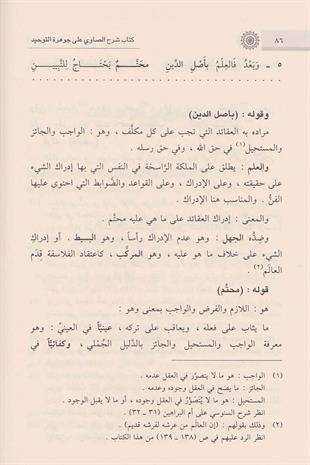 ٨٦
كتاب شرح الصاوي على جوهرة التوحيد
٥ ـ وَبَعْدُ فَالعِلْمُ بأَصْلِ الدِّينِ محَتَّمٌ يَحْتَاجُ لِلتَّبِيينِ
وقوله : (بأصل الدين)
مراده به العقائد التي تجب على كل مكلَّف ، وهو : الواجب والجائز
والمستحيل(١) في حق الله ، وفي حق رسله .
والعلم : يطلق على الملكة الرَّاسخة في النفس التي بها إدراك الشيء
على حقيقته ، وعلى الإدراك ، وعلى القواعد والضَّوابط التي احتوى عليها
الفنُّ . والمناسب هنا الإدراك .
والمعنى : إدراك العقائد على ما هي عليه محتَّم .
وضِدُّه الجهل : وهو عدم الإدراك رأساً ، وهو البسيط . أو إدراك
الشيء على خلاف ما هو عليه ، وهو المركَّب ، كاعتقاد الفلاسفة قِدَم
العالَم(٢) .
قوله : (محتَّم)
هو : اللازم والفرض والواجب بمعنى وهو :
ما يثاب على فعله ، ويعاقب على تركه ، عينيَّاً في العينيِّ : وهو
معرفة الواجب والمستحيل والجائز بالدَّليل الجُمْلي ، وكفائيَّاً في
(١) الواجب : هو ما لا يتصوَّر في العقل عدمه .
الجائز : ما يصح في العقل وجوده وعدمه .
المستحيل : هو ما لا يُتَصَوَّرُ في العقل وجوده ، أو ما لا يقبل الوجود .
انظر شرح السنوسي على أم البراهين (٣١ ـ ٣٢) .
(٢) وذلك بقولهم : (إن العالم من عرشه لفرشه قديم) .
انظر الرد عليهم في ص (١٣٨ ـ ١٣٩) من هذا الكتاب .